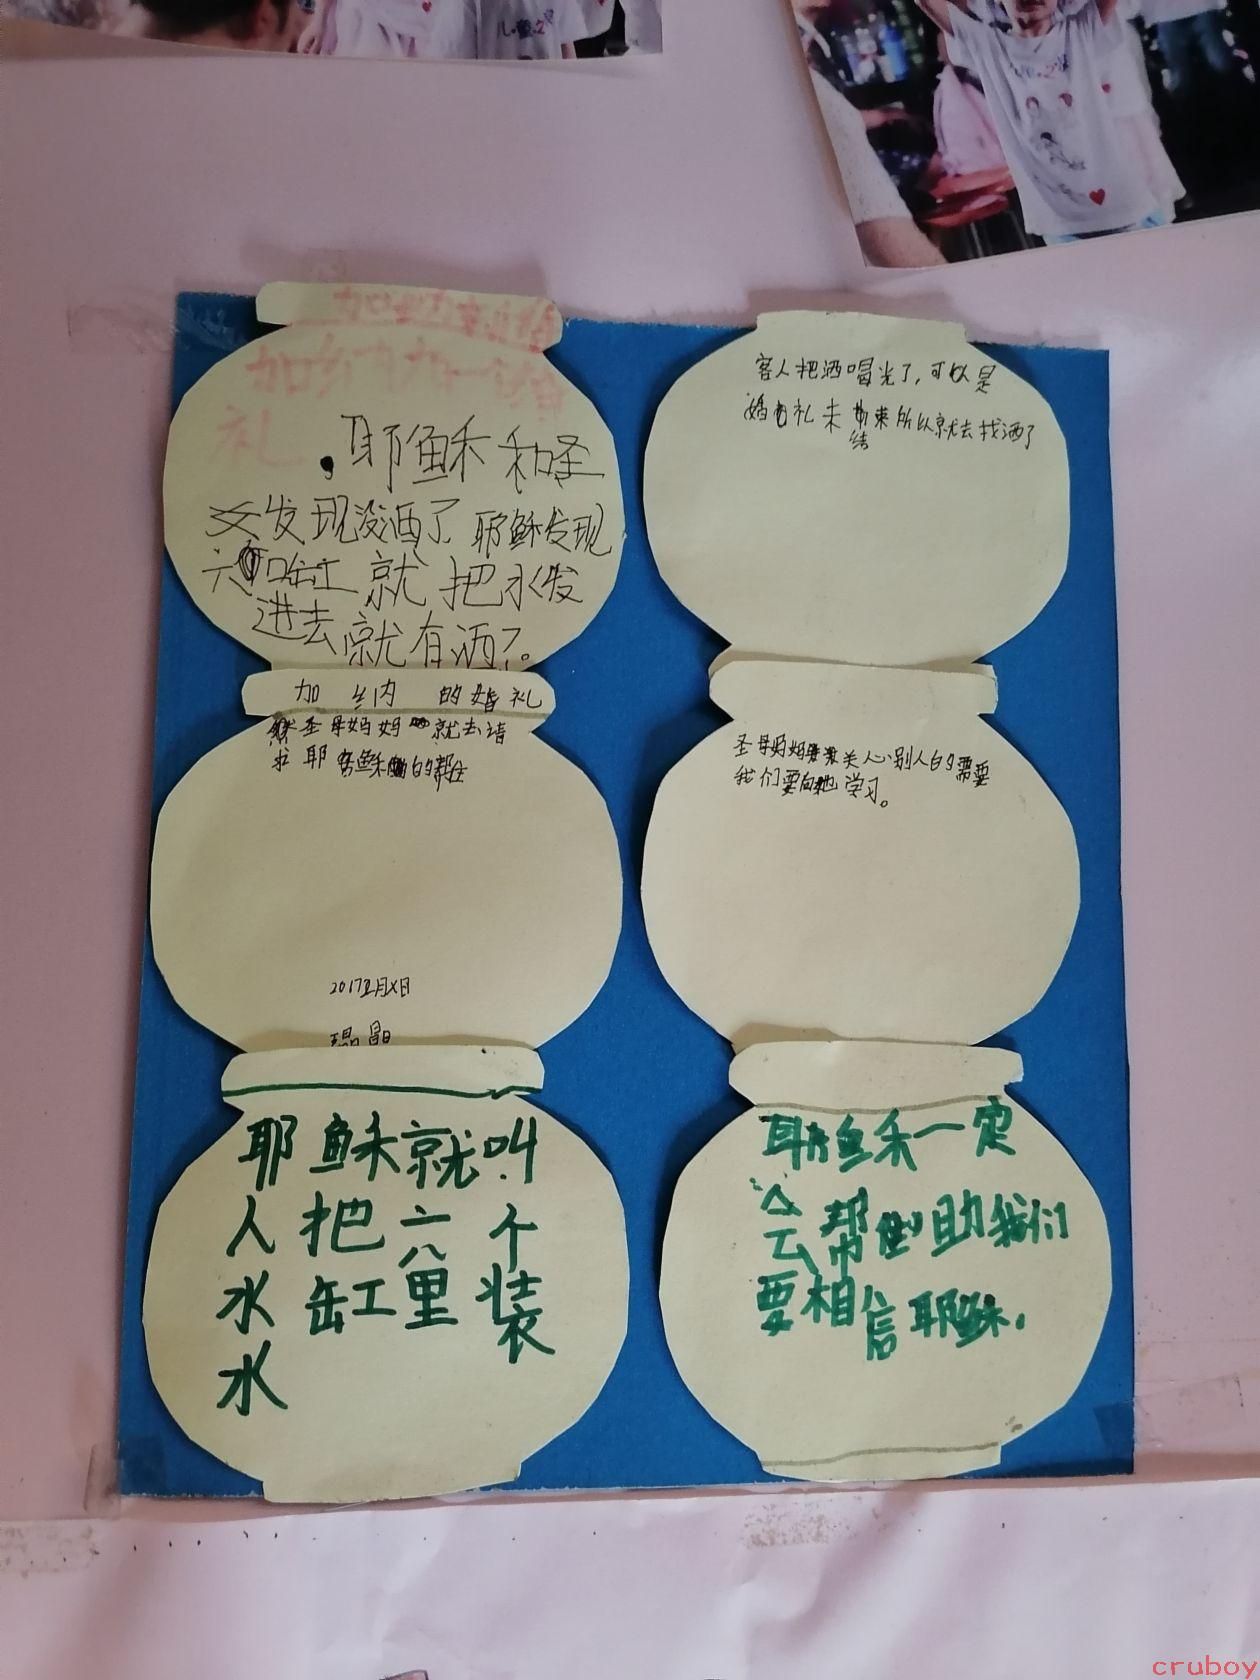 加纳的婚礼
礼
.耶稣和圣
女发现没酒了 耶稣发现
六口缸就把水发
进去就有酒了。
客人把洒喝光了,可以是
婚礼未结束所以就去找洒了
加纳的婚礼
然圣母妈妈就去请
求耶稣的帮住
2017
圣母妈妈关心别人的需要
我们要向她学习。
耶稣就叫
人把六个
水缸里装
水
耶稣一定
会帮助我们
要相信耶稣.
儿童之
cruboy